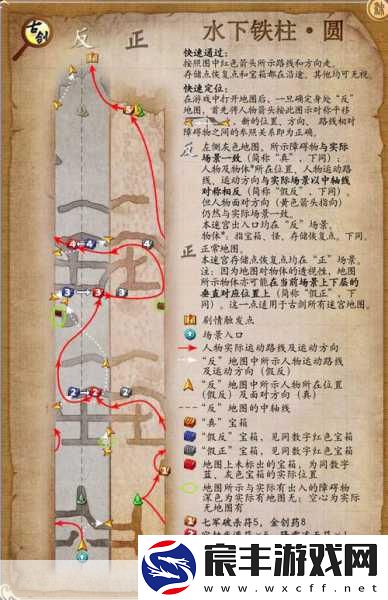 古剑
反 正
水下铁柱·圆
快速通过：
按照图中红色箭头所示路线和方向走。
存储点恢复点和宝箱都在沿途，其他均可无视。
快速定位：
在游戏中打开地图后，一旦确定身处“反”
地图，首先将人物箭头按此图示对称中移
新的位置、方向、路线相对
障碍物之间的参照关系即为正确。
反 左侧灰色地图。所示障碍物与实际
场景一致（简称“真”，下同）；
人物及物体*所在位置、人物运动路
线、运动方向与实际场景以中轴线
对称相反（简称“假反”，下同），
但人物面对方向（黄色箭头指向）
仍然与实际场景一致。
本迷宫出入口均在“反”场景。
物体*，指宝箱、怪、存储恢复点，下同。
正 正常地图。
本迷宫存储点恢复点均在“正”场景。
注：因为地图对物体的透视性，地图
所示物体亦可能在当前场景上下层的
垂直对应位置上（简称“假正”，下
同）。这一点适用于古剑所有迷宫地图。
剧情触发点
场景入口
人物实际运动路线及运动方向
“反”地图中所示人物运动路线
及运动方向（假反）
“反”地图中所示人物所在位置
（假反）及面对方向（真）
“反”地图的中轴线
“真”宝箱
“假反”宝箱，见同数字红色宝箱
“假正”宝箱，见同数字红色宝箱
地图上未标出的宝箱，为同数字
蓝、灰色宝箱的实际位置
地图所示与实际有出入的障碍物
深色为实际有地图无；空心为实际
无地图有
1 七军破杀符5，金创药8
4 4 4
3 3 3
2 2 2
1
宸丰游戏网
www.wxcff.net